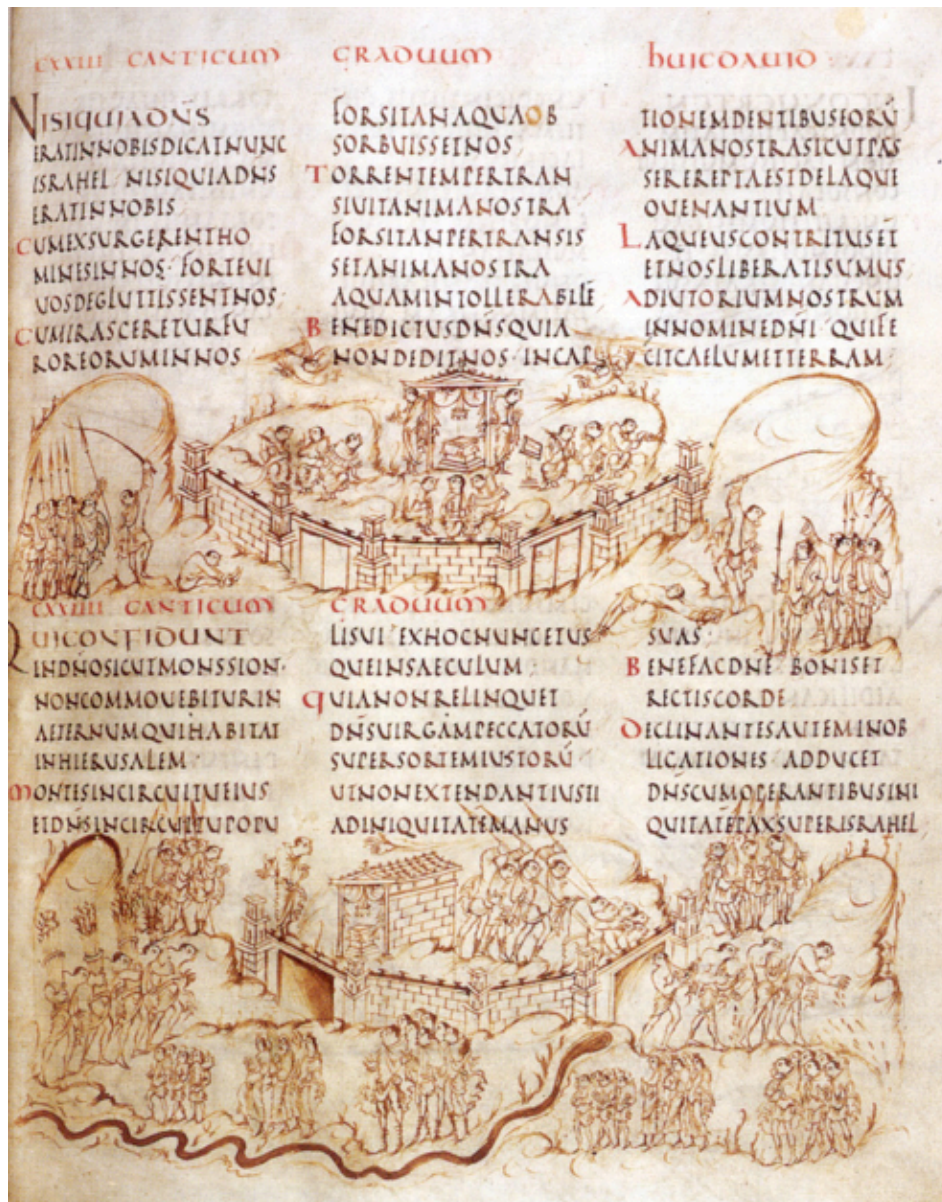 CXXIII CANTICUM GRADUUM HUIC DAUID
NISIQUIADN̄S
ERATINNOBISDICATNUNC
ISRAHEL NISIQUIADN̄S
ERATINNOBIS
CUMEXSURGERENTHO
MINESINNOS· FORTEUI
UOSDEGLUTTISSENTNOS
CUMIRASCERETURFU
ROREORUMINNOS
FORSITANAQUAOB
SORBUISSETNOS
TORRENTEMPERTRAN
SIUITANIMANOSTRA
FORSITANPERTRANSIS
SETANIMANOSTRA
AQUAMINTOLLERABILĒ
BENEDICTUSDN̄SQUIA
NONDEDITNOS·INCAP
TIONEMDENTIBUSEORŪ
ANIMANOSTRASICUTPAS
SEREREPTAESTDELAQUE
OUENANTIUM
LAQUEUSCONTRITUSET
ETNOSLIBERATISUMUS
ADIUTORIUMNOSTRUM
INNOMINEDN̄I· QUIFE
CITCAELUMETTERRAM·
CXXIIII CANTICUM GRADUUM
QUICONFIDUNT
INDN̄OSICUTMONSSION·
NONCOMMOUEBITURIN
AETERNUMQUIHABITAT
INHIERUSALEM
MONTESINCIRCUITUEIUS
ETDN̄SINCIRCUITUPOPU
LISUI· EXHOCNUNCETUS
QUEINSAECULUM
QUIANONRELINQUET
DN̄SUIRGAMPECCATORŪ
SUPERSORTEMIUSTORŪ
UTNONEXTENDANTIUSTI
ADINIQUITATEMANUS
SUAS·
BENEFACDN̄E BONISET
RECTISCORDE
DECLINANTESAUTEMINOB
LIGATIONES ADDUCET
DN̄SCUMOPERANTIBUSINI
QUITATĒPAXSUPERISRAHEL